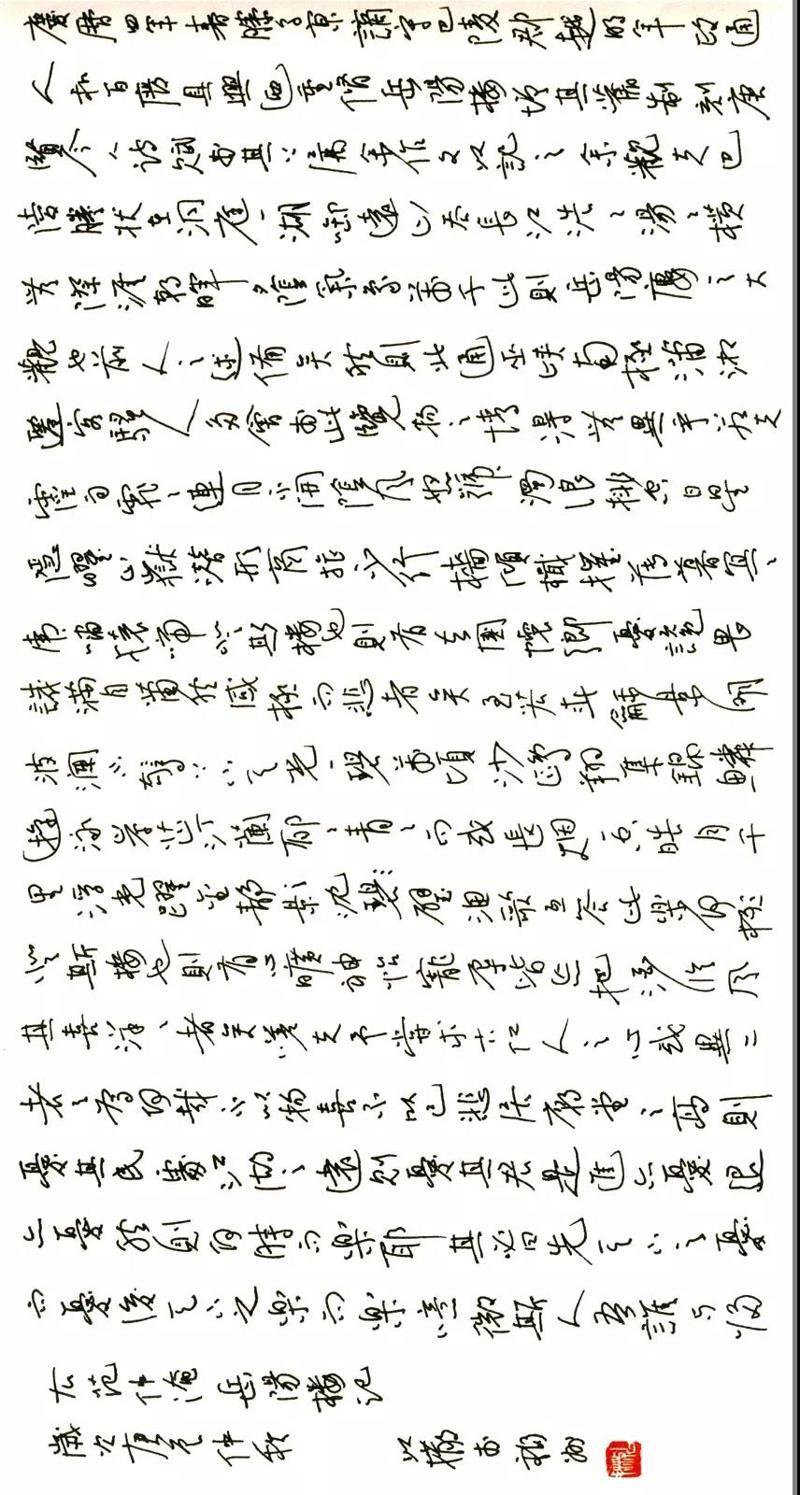 慶曆四年春滕子京謫守巴陵郡越明年政通
人和百廢具興迺重修岳陽樓增其舊制刻唐
賢今人詩賦於其上屬予作文以記之予觀夫巴
陵勝狀在洞庭一湖銜遠山吞長江浩浩湯湯橫
無際涯朝暉夕陰氣象萬千此則岳陽樓之大
觀也前人之述備矣然則北通巫峽南極瀟湘
遷客騷人多會於此覽物之情得無異乎若夫
霪雨霏霏連月不開陰風怒號濁浪排空日星
隱曜山嶽潛形商旅不行檣傾楫摧薄暮冥冥
虎嘯猿啼登斯樓也則有去國懷鄉憂讒畏
譏滿目蕭然感極而悲者矣至若春和景明
波瀾不驚上下天光一碧萬頃沙鷗翔集錦鱗
游泳岸芷汀蘭郁郁青青而或長煙一空皓月千
里浮光躍金靜影沈璧漁歌互答此樂何極
登斯樓也則有心曠神怡寵辱皆忘把酒臨風
其喜洋洋者矣嗟夫予嘗求古仁人之心或異二
者之為何哉不以物喜不以己悲居廟堂之高則
憂其民處江湖之遠則憂其君是進亦憂退
亦憂然則何時而樂耶其必曰先天下之憂
而憂後天下之樂而樂噫微斯人吾誰與歸
右范仲淹岳陽樓記
歲次庚